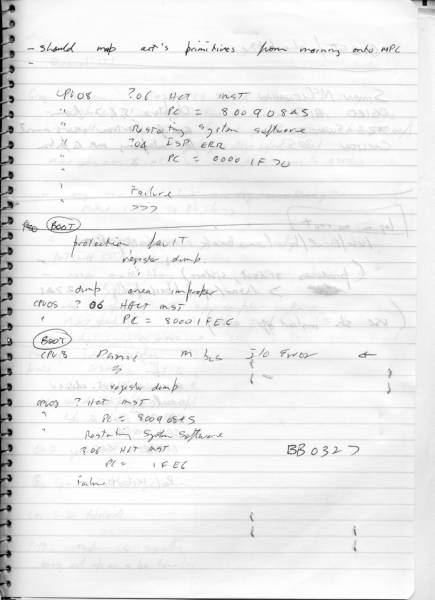 - should map art's primitives from morning onto MPC
-
CPU08 ?06 HLT INST
" PC = 800908A5
" Restarting system software
" ?04 ISP ERR
" PC = 00001F70
" Failure
" >>>
BOOT
protection fault
register dump
dump area improper
CPU05 ? 06 HALT INST
" PC = 80001FEC
BOOT
CPU 8 Panic m I/O Error
register dump
CPU05 ? HLT INST
" PC = 800908A5
Restarting System Software
?06 HLT INST BB0327
PC = 1FEC
Failure